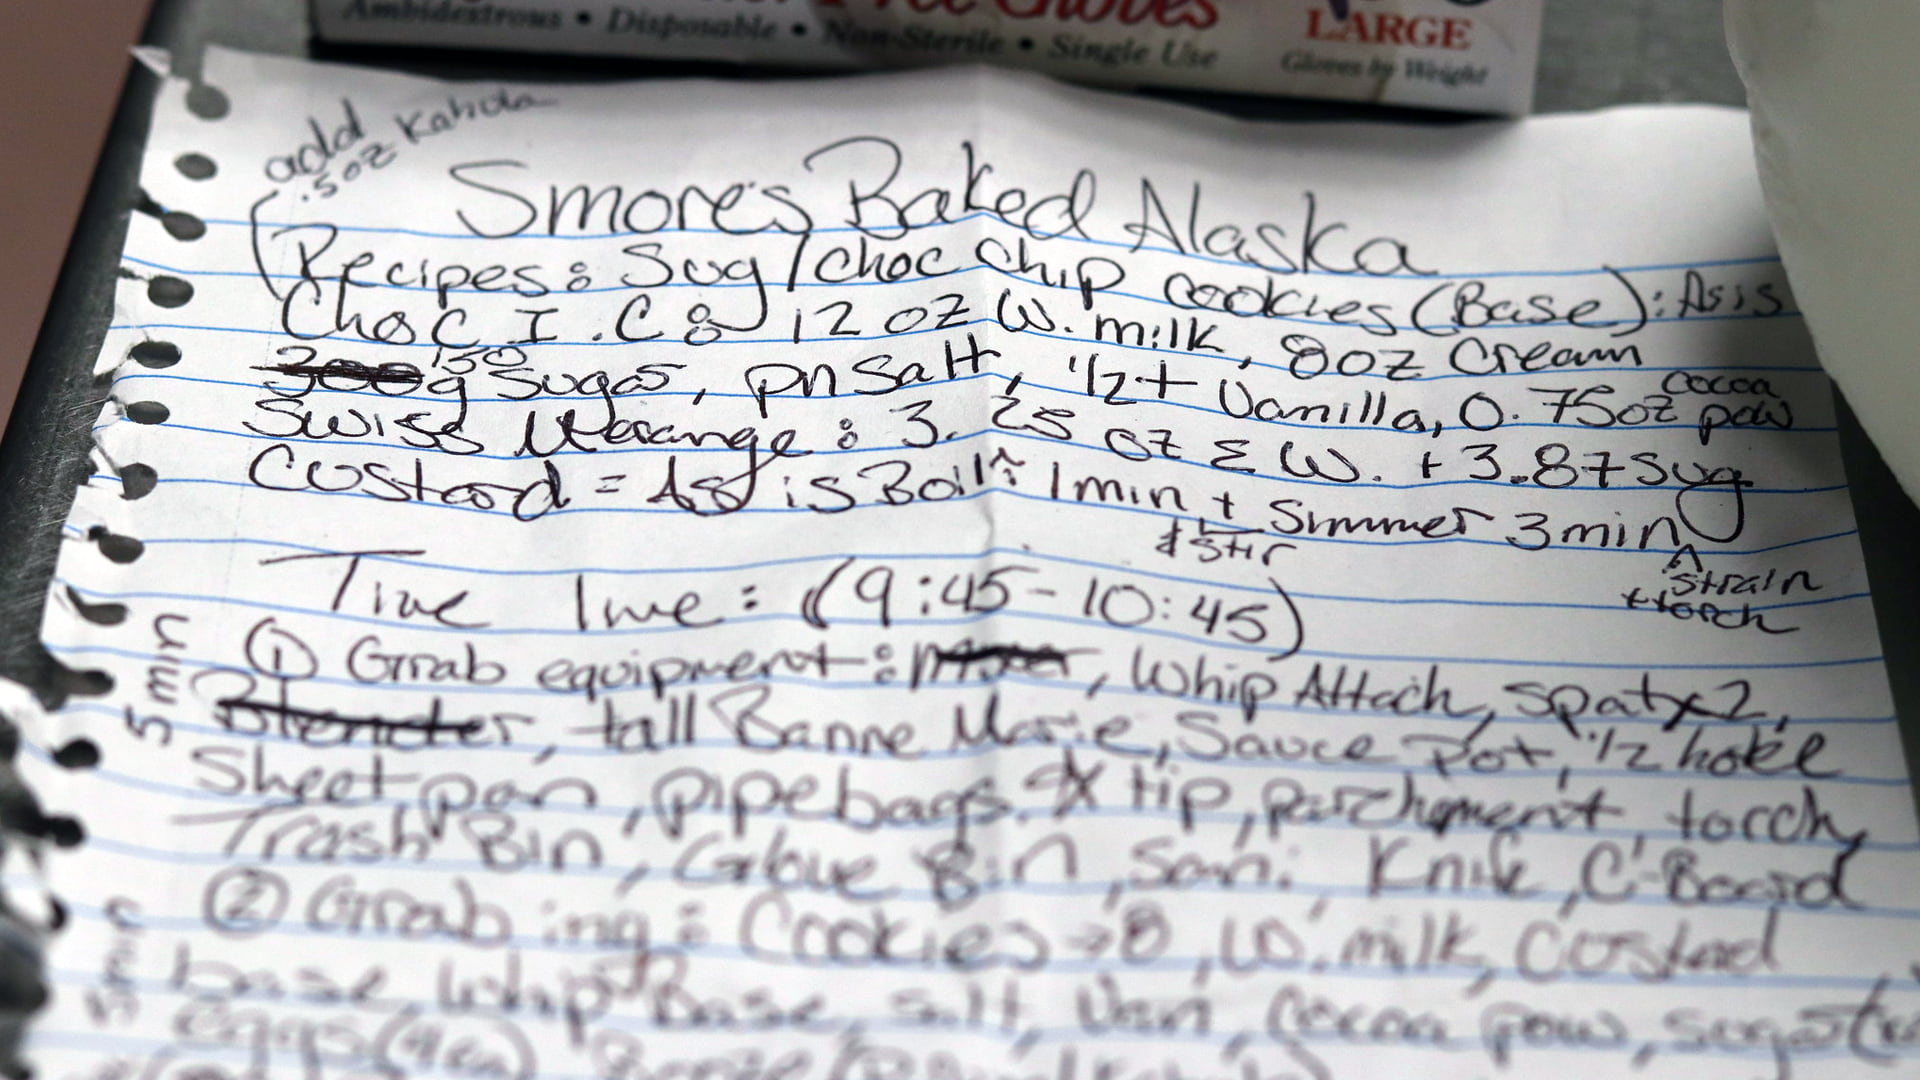 Free Gloves
LARGE
Ambidextrous • Disposable • Non-Sterile • Single Use
Gloves by Weight
add
.5oz Kahula
Smores Baked Alaska
Recipes: Sug/choc chip cookies (Base): As is
Choc I.C: 12 oz W. milk, 8oz Cream
300 150g Sugar, pn Salt, 1/2 t Vanilla, 0.75oz cocoa pow
Swiss Merange: 3.25 oz E W. + 3.87 sug
Custard = As is Boil 1 min + Simmer 3 min
& stir
strain
+ torch
Time line: (9:45-10:45)
5 min
① Grab equipment: Mixer, Whip Attach, Spat x2,
Blender, tall Banne Marie, Sauce Pot, 1/2 hotel
Sheet pan, pipebags. 4x tip, parchment, torch,
Trash Bin, Glove Bin, Sani. Knife, C-Board
② Grab ing: Cookies → 8, W. milk, Custard
base, Whip Base, salt, Van, Cocoa pow, sugar
eggs